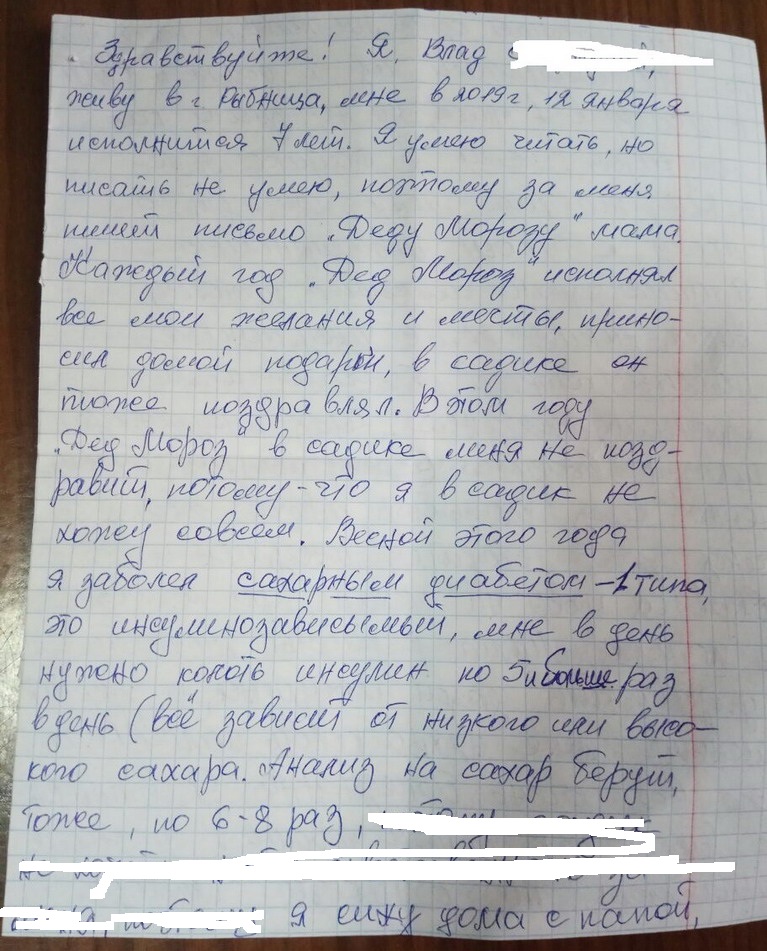 Здравствуйте! Я, Влад
живу в г Рыбница, мне в 2019г, 12 января
исполнится 7 лет. Я умею читать, но
писать не умею, поэтому за меня
пишет письмо „Деду Морозу" мама.
Каждый год „Дед Мороз" исполнял
все мои желания и мечты, прино-
сил домой подарки, в садике он
тоже поздравлял. В этом году
„Дед Мороз" в садике меня не позд-
равит, потому-что я в садик не
хожу совсем. Весной этого года
я заболел сахарным диабетом - 1 типа,
это инсулинозависымый, мне в день
нужно колоть инсулин по 5 и больше раз
в день (всё зависит от низкого или высо-
кого сахара. Анализ на сахар берут,
тоже, по 6-8 раз,
я сижу дома с папой,